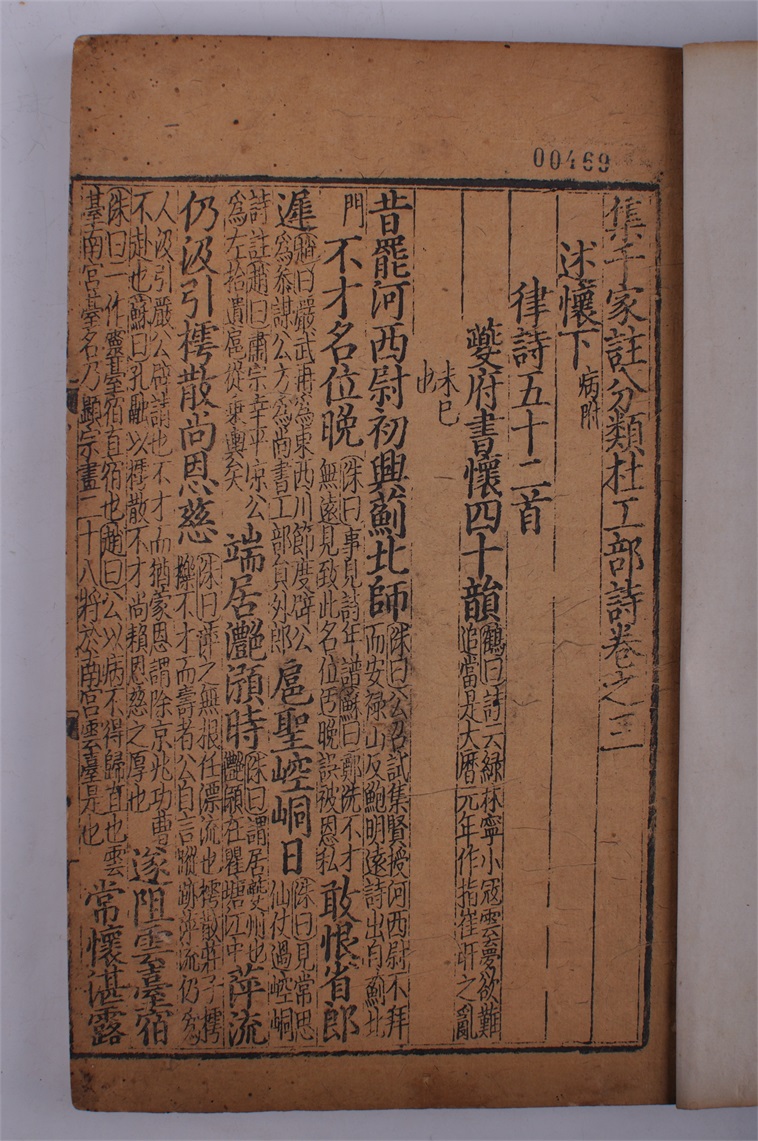 00469
集千家註分類杜工部詩卷之三
述懷下 病附
律詩五十二首
夔府書懷四十韻 鶴曰詩云綠林寧小寇雲夢欲難
追當是大曆元年作指崔旰之亂
未已
也
昔罷河西尉初興薊北師 洙曰公召試集賢授河西尉不拜
而安祿山反鮑明遠詩出自薊北
門 不才名位晚 洙曰事見詩年譜蘇曰鄭洗不才
無遠見致此名位晚誤被恩私 敢恨省郎
遲 趙曰嚴武再為東西川節度辟公
為叅謀公方為尚書工部員外郎 扈聖崆峒日 洙曰見常思
仙仗過崆峒
詩註趙曰肅宗幸平凉公
為左拾遺扈從乘輿矣 端居灩澦時 洙曰謂居夔州也
灩澦在瞿塘江中 萍流
仍汲引樗散尚恩慈 洙曰萍之無根任漂流也樗散莊子樗
櫟不才而壽者公自言蹤跡萍流仍為
人汲引嚴公辟請也不才而猶蒙恩謂除京兆功曹
不赴也蘇曰孔融以樗散不才尚賴恩慈之厚也 遂阻雲臺宿
洙曰一作靈臺宿直宿也趙曰公以病不得歸直也雲
臺南宮臺名乃顯宗畫二十八將於南宮雲臺是也 常懷湛露